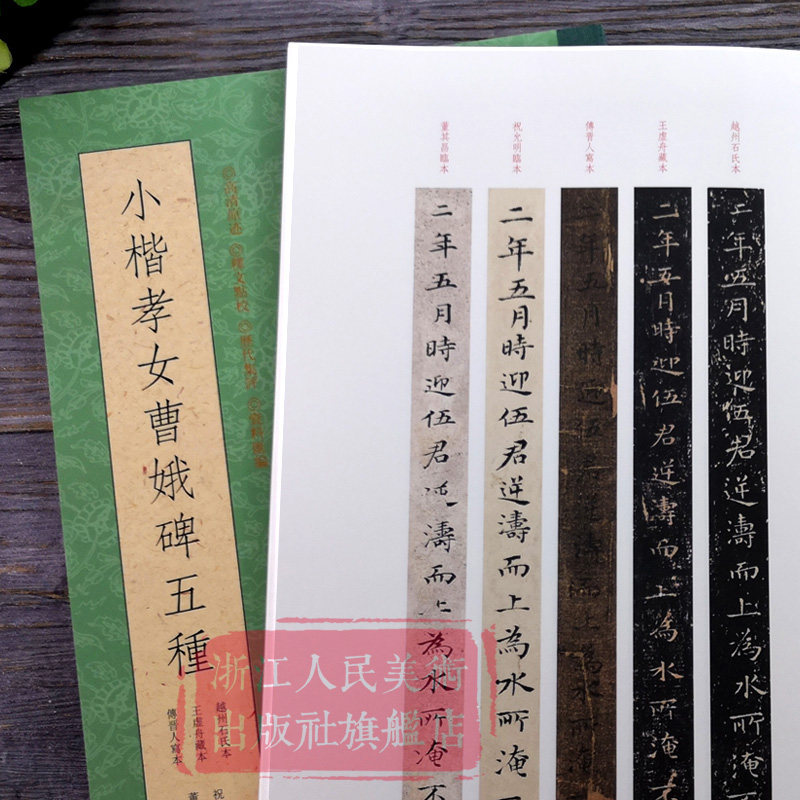 小楷孝女曹娥碑五種
◎高清原迹 ◎釋文點校 ◎歷代集評 ◎資料彙編
越州石氏本
王虛舟藏本
傳晉人寫本
祝
董
越州石氏本
王虛舟藏本
傳晉人寫本
祝允明臨本
董其昌臨本
二年五月時迎伍君逆濤而上為水所淹
二年五月時迎伍君逆濤而上為水所淹不
二年五月時迎伍君逆濤而上為水所淹
二年五月時迎伍君逆濤而上為水所淹
二年五月時迎伍君 濤而上為水所淹不
浙江人民美術
出版社旗艦店